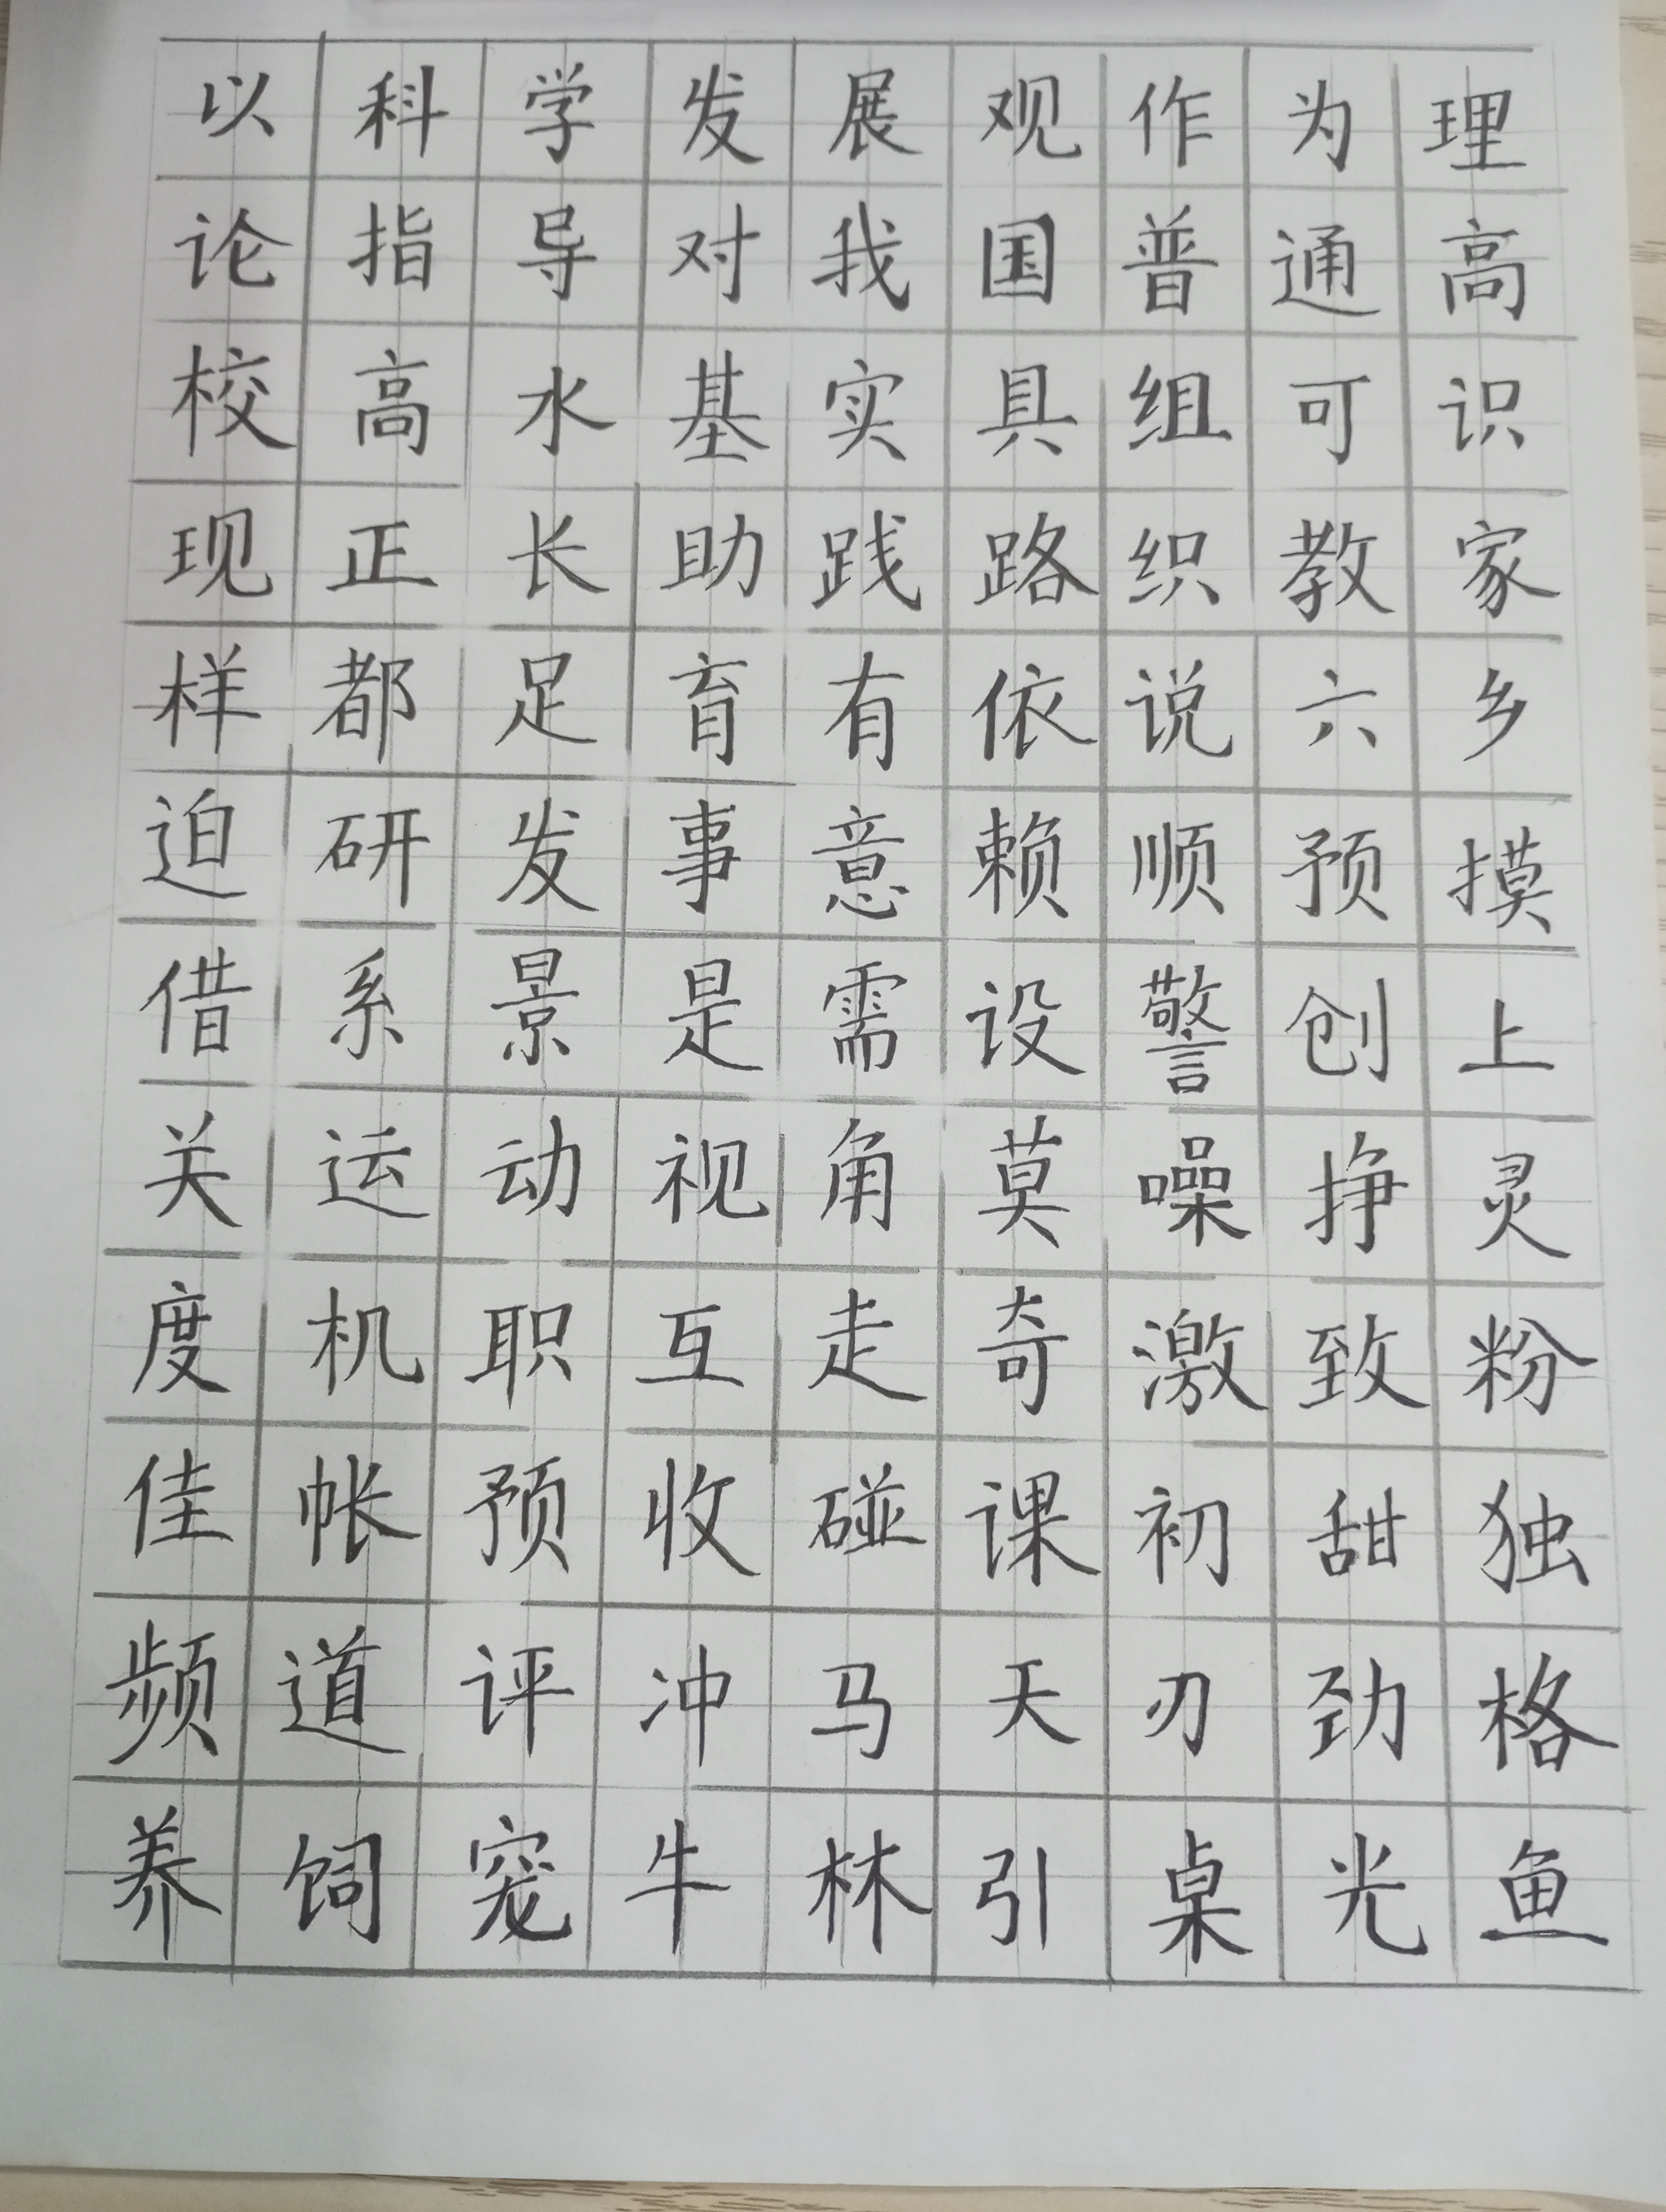 以科学发展观作为理
论指导对我国普通高
校高水基实具组可识
现正长助践路织教家
样都足育有依说六乡
迫研发事意赖顺预摸
借系景是需设警创上
关运动视角莫噪挣灵
度机职互走奇激致粉
佳帐预收碰课初甜独
频道评冲马天刃劲格
养饲宠牛林引桌光鱼